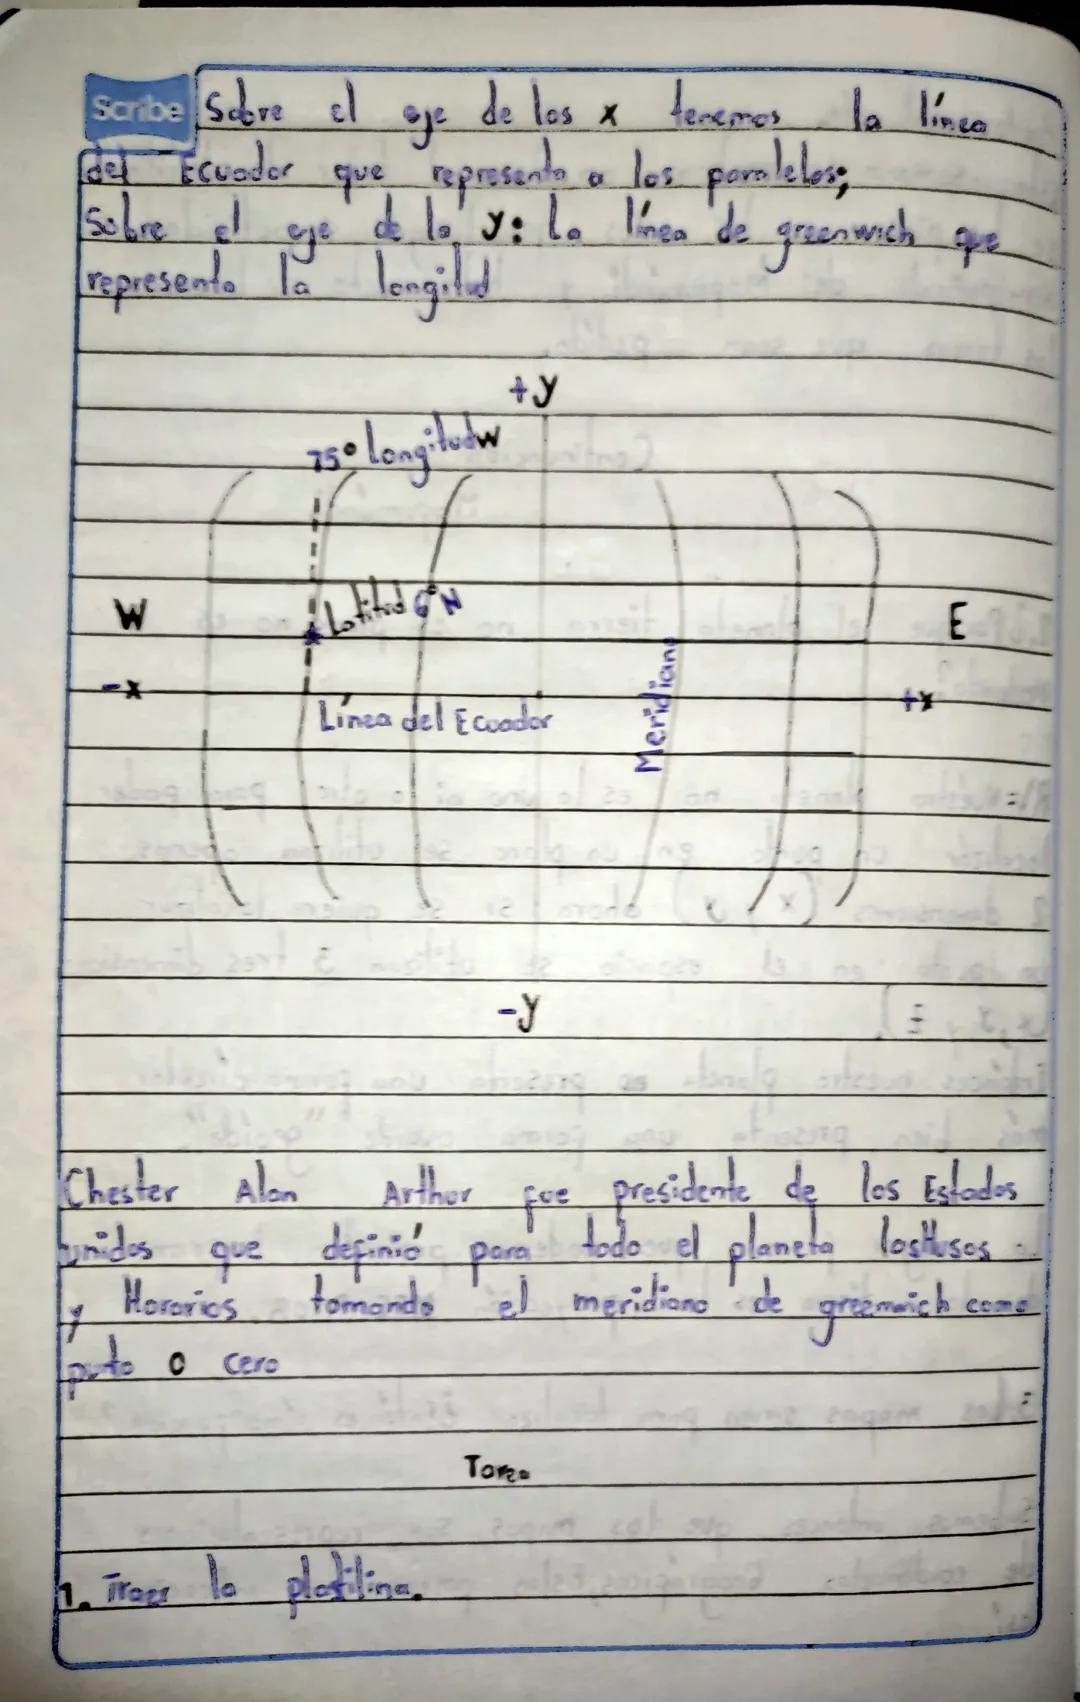 Scribe
Sobre el eje de los x tenemos la línea
del Ecuador que representa a los paralelos;
Sobre el eje de la y: La línea de greenwich que
representa la longitud
+y
75° longitud W
Latitud 6° N
W
E
-x
+x
Línea del Ecuador
Meridiano
-y
Chester Alan Arthur fue presidente de los Estados
unidos que definió para todo el planeta los Husos
y Horarios tomando el meridiano de greenwich como
punto 0 cero
Tarea
1. Traer la plastilina.